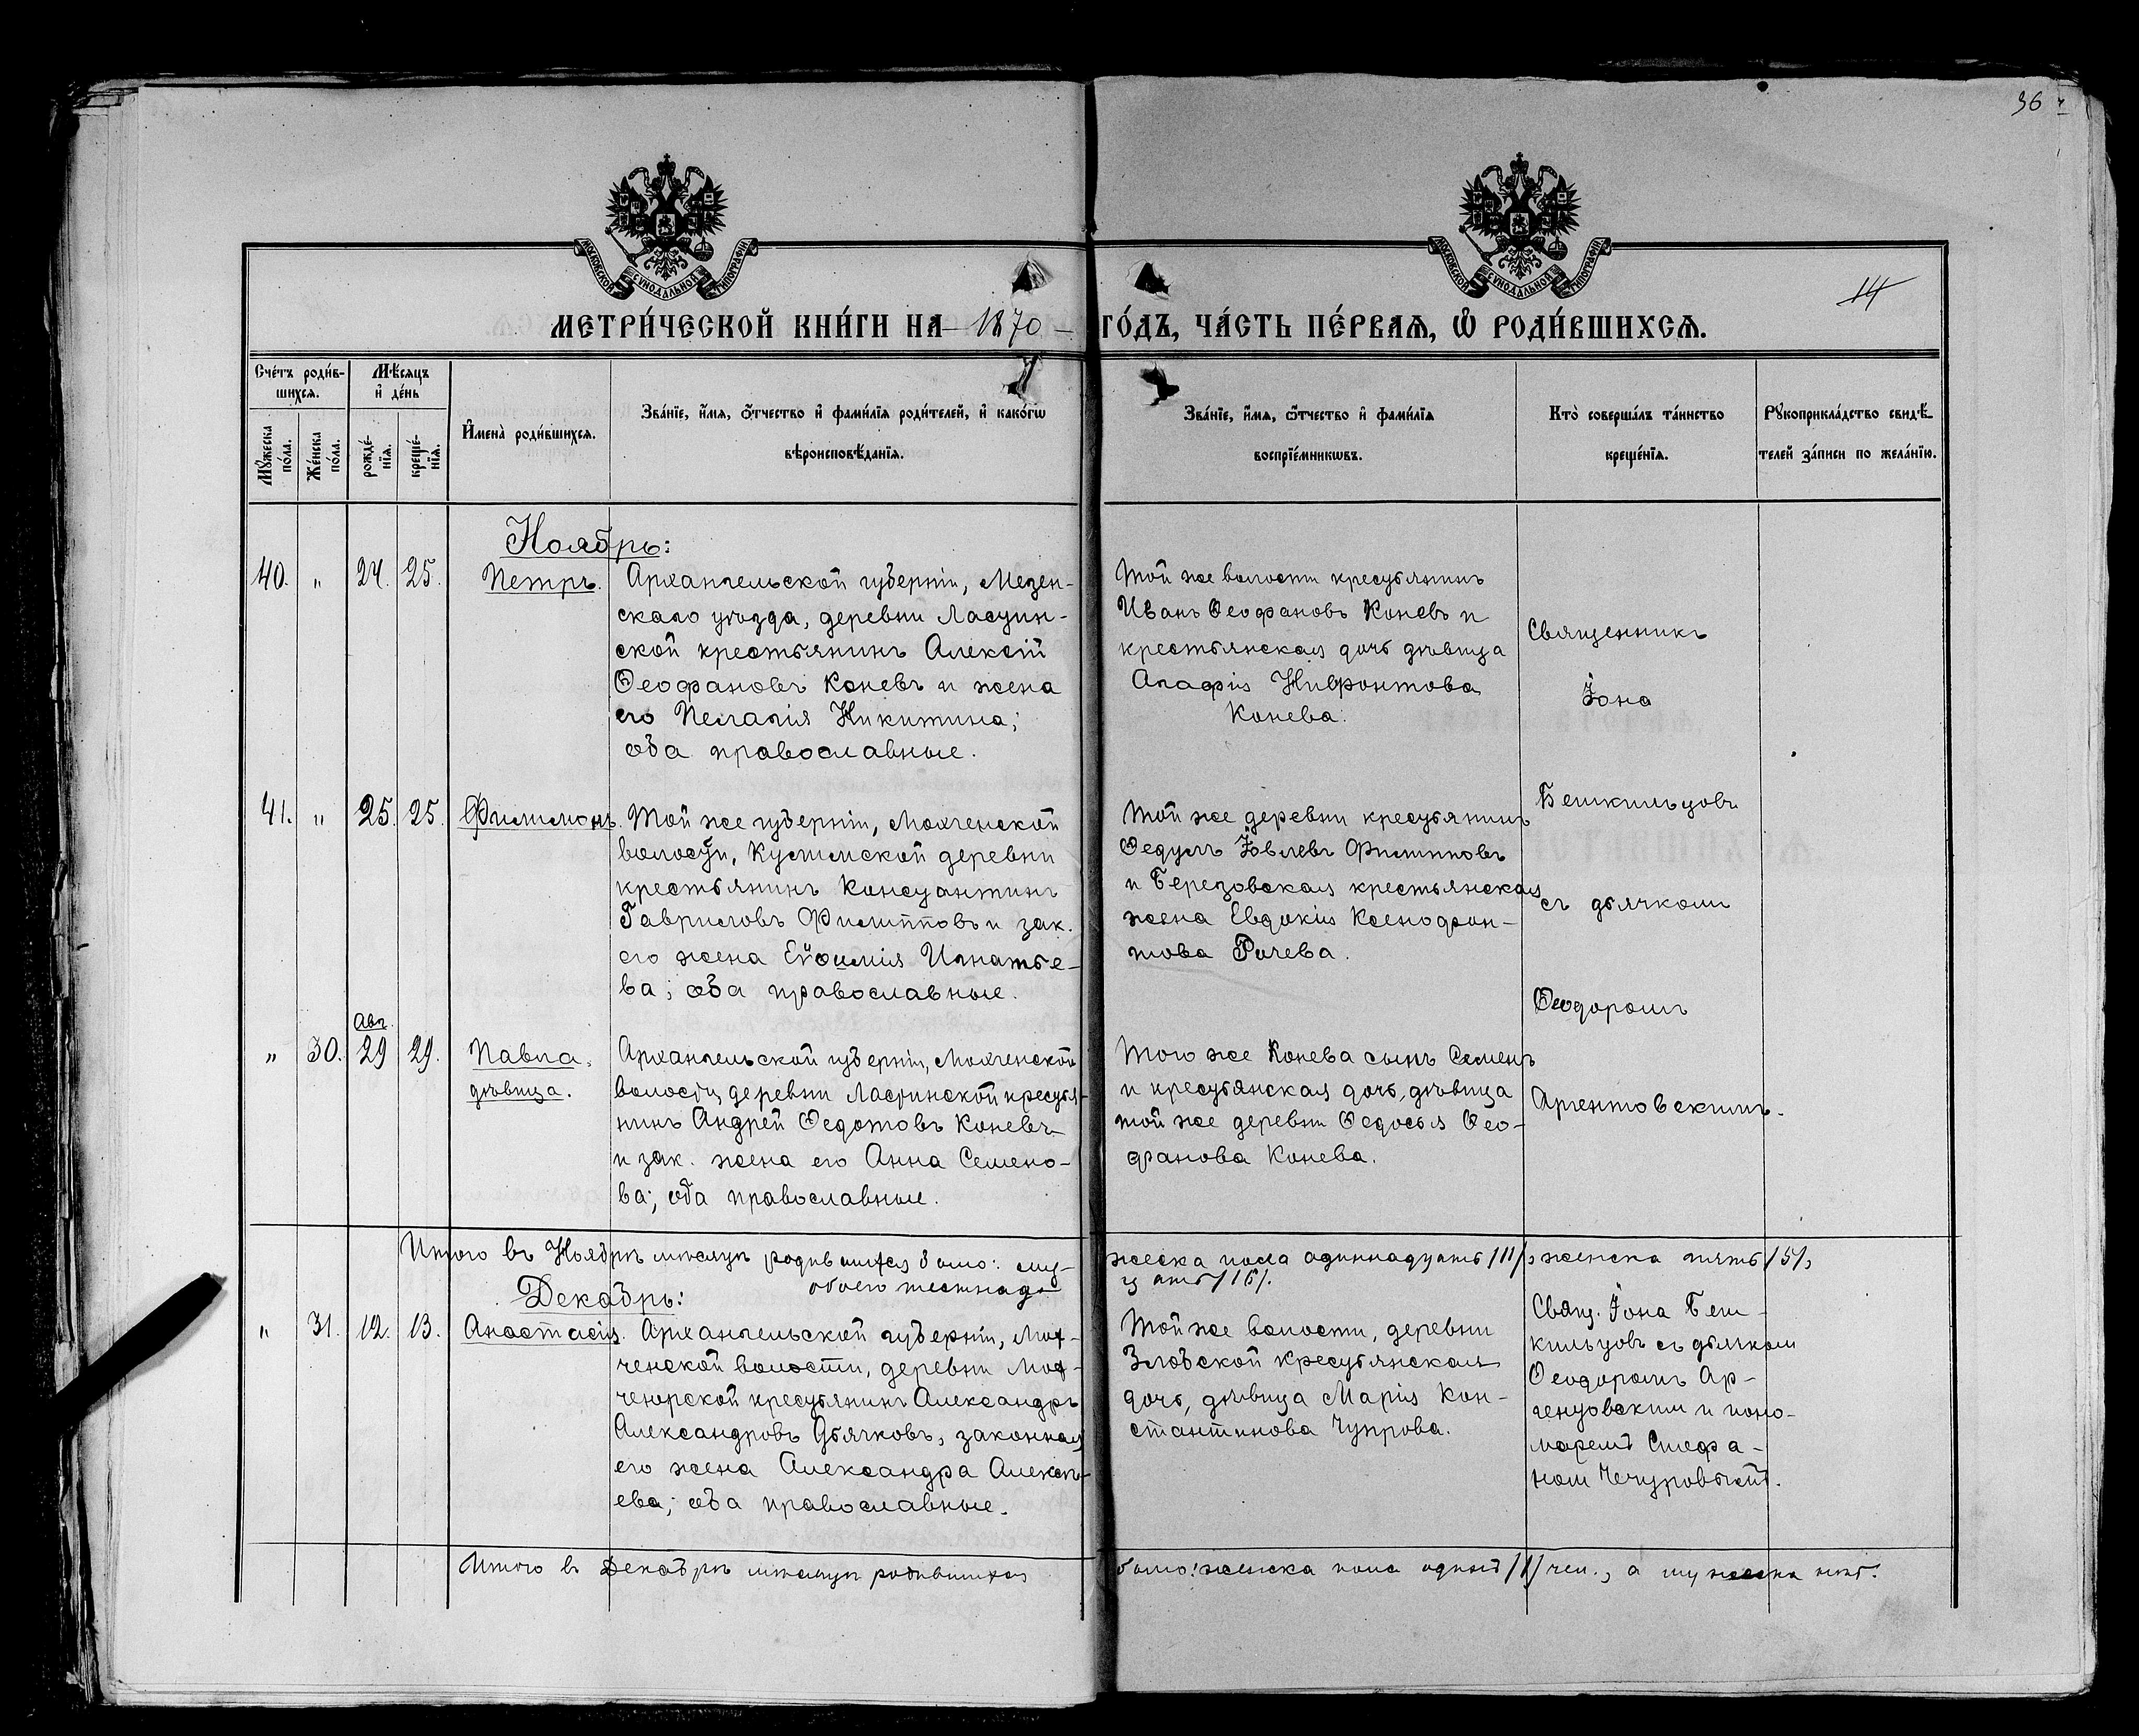 36
МОСКОВСКОЙ СУНОДАЛЬНОЙ ТИПОГРАФІИ
МОСКОВСКОЙ СУНОДАЛЬНОЙ ТИПОГРАФІИ
14
МЕТРИ́ЧЕСКОЙ КНИ́ГИ НА 1870 ГО́ДЪ, ЧА́СТЬ ПЕ́РВАѦ, Ѡ РОДИ́ВШИХСѦ.
Сче́тъ роди́вшихся.
Мѣ́сяцъ и де́нь
Мꙋ́жеска по́ла.
Же́нска по́ла.
рожде́нїя.
креще́нїя.
Имена̀ роди́вшихся.
Зва́нїе, и́мя, о́тчество и фами́лїя роди́телей, и како́гѡ
вѣроисповѣ́данїя.
Зва́нїе, и́мя, ѻ́тчество и фами́лїя
воспрїе́мникѡвъ.
Кто̀ соверша́лъ та́инство
креще́нїя.
Рꙋкоприкла́дство свидѣ́-
телей за́писи по жела́нїю.
Ноябрь:
40. " 24. 25. Петръ.
Архангельской губерніи, Мезен-
скаго уѣзда, деревни Ластин-
ской крестьянинъ Алексій
Ѳеофановъ Коневъ и жена
его Пелагія Никитина;
оба православные.
Той же волости крестьянинъ
Иванъ Ѳеофановъ Коневъ и
крестьянская дочь дѣвица
Агафія Нифонтова
Конева.
Священникъ
Іона
41. " 25. 25. Филимонъ.
Той же губерніи, Мохченской
волости, деревни
крестьянинъ Константинъ
Гавриловъ Филипповъ и зак.
его жена Евфимія Игнатье-
ва; оба православные.
Той же деревни крестьянинъ
Ѳедулъ Іовлевъ Филипповъ
и Березовская крестьянская
жена Евдокія Ксенофон-
това Рочева.
Бешкильцовъ
съ дьячкомъ
Ѳеодоромъ
" 30. 29 29. Павла,
дѣвица.
Архангельской губерніи, Мохченской
волости, деревни Ластинской крестья-
нинъ Андрей Ѳедотовъ Коневъ
и зак. жена его Анна Семено-
ва; оба православные.
Того же Конева сынъ Семенъ
и крестьянская дочь, дѣвица
той же деревни Ѳедосья Ѳео-
фанова Конева.
Аргентовскимъ.
Итого въ Ноябрѣ мѣсяцѣ родившихся было: му-
жеска пола одиннадцать /11/, женска пять /5/,
обоего шестнад-
цать /16/.
Декабрь:
" 31. 12. 13. Анастасія.
Архангельской губерніи, Мох-
ченской волости, деревни Мох-
ченской крестьянинъ Александръ
Александровъ Дьячковъ, законная
его жена Александра Алексѣ-
ева; оба православные.
Той же волости, деревни
крестьянская
дочь, дѣвица Марія Кон-
стантинова Чупрова.
Свящ. Іона Беш-
кильцовъ съ дьячкомъ
Ѳеодоромъ Ар-
гентовскимъ и поно-
маремъ Стефа-
номъ
Итого въ Декабрѣ мѣсяцѣ родившихся
было: женска пола одна /1/ чел., а мужеска нѣтъ.